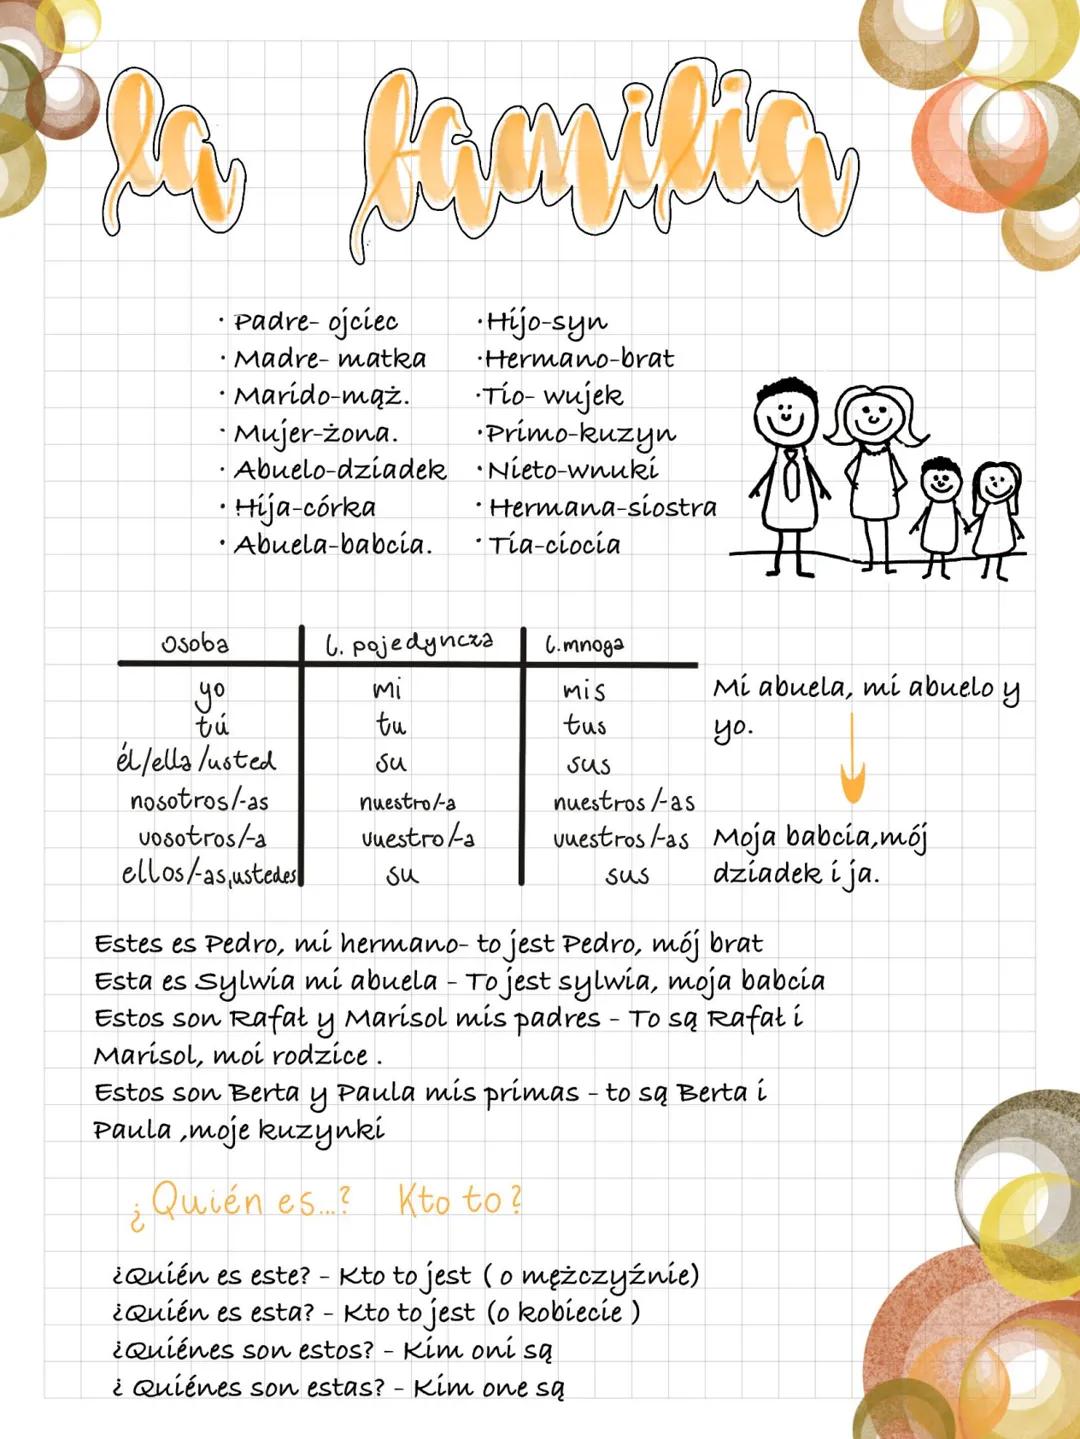 la familia
· Padre- ojciec
· Madre- matka
· Marido-mąż.
· Mujer-żona.
· Abuelo-dziadek
· Hija-córka
· Abuela-babcia.
·Hijo-syn
·Hermano-brat
·Tio- wujek
·Primo-kuzyn
·Nieto-wnuki
· Hermana-siostra
· Tia-ciocia
osoba l. pojedyncza l.mnoga
yo mi mis
tú tu tus
él/ella/usted su sus
nosotros/-as nuestro/-a nuestros/-as
vosotros/-a vuestro/-a vuestros/-as
ellos/-as,ustedes su sus
Mi abuela, mi abuelo y
yo.
Moja babcia,mój
dziadek i ja.
Estes es Pedro, mi hermano- to jest Pedro, mój brat
Esta es Sylwia mi abuela - To jest sylwia, moja babcia
Estos son Rafał y Marisol mis padres - To są Rafał i
Marisol, moi rodzice .
Estos son Berta y Paula mis primas - to są Berta i
Paula ,moje kuzynki
¿Quién es...? Kto to?
¿Quién es este? - Kto to jest ( o mężczyźnie)
¿Quién es esta? - Kto to jest (o kobiecie )
¿Quiénes son estos? - Kim oni są
¿ Quiénes son estas? - Kim one są